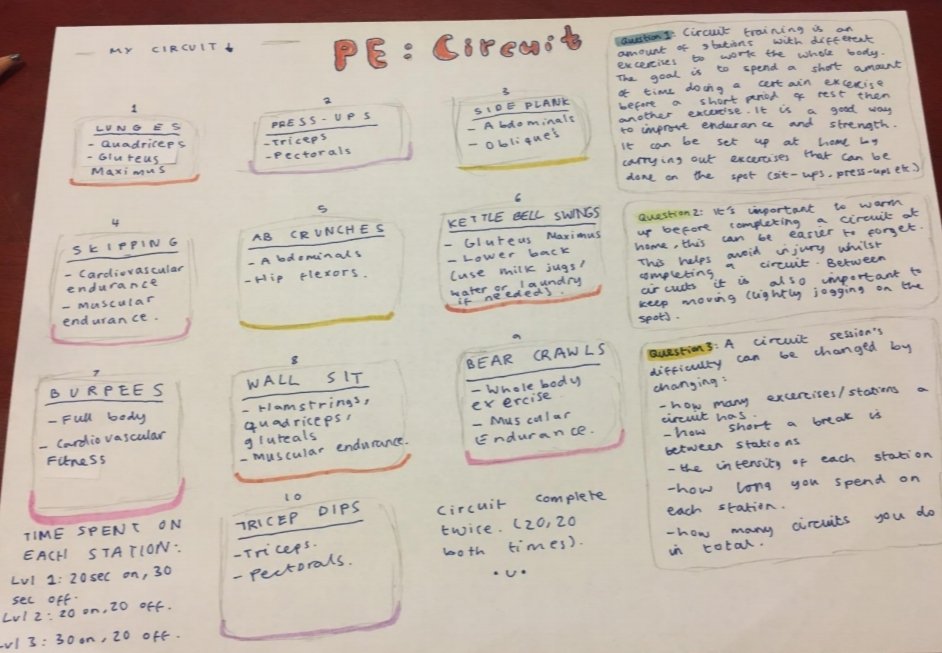 MY CIRCUIT
PE: Circuit
1
LUNGES
- Quadriceps
- Gluteus
Maximus
2
PRESS-UPS
- Triceps
- Pectorals
3
SIDE PLANK
- Abdominals
- Obliques
4
SKIPPING
- Cardiovascular
endurance
- Muscular
endurance.
5
AB CRUNCHES
- Abdominals
- Hip flexors.
6
KETTLE BELL SWINGS
- Gluteus Maximus
- Lower back
(use milk jugs/
water or laundry
if needed).
7
BURPEES
- Full body
- Cardiovascular
Fitness
8
WALL SIT
- Hamstrings,
quadriceps,
gluteals
- Muscular endurance.
9
BEAR CRAWLS
- Whole body
exercise.
- Muscular
Endurance.
10
TRICEP DIPS
- Triceps.
- Pectorals.
TIME SPENT ON
EACH STATION:
Lvl 1: 20sec on, 30
sec off.
Lvl 2: 20 on, 20 off.
Lvl 3: 30 on, 20 off.
Circuit complete
twice. (20,20
both times).
Question 1: Circuit training is an
amount of stations with different
excercises to work the whole body.
The goal is to spend a short amount
of time doing a certain excercise
before a short period of rest then
another excercise. It is a good way
to improve endurance and strength.
It can be set up at home by
carrying out excercises that can be
done on the spot (sit-ups, press-ups etc.)
Question 2: It's important to warm
up before completing a circuit at
home, this can be easier to forget.
This helps avoid injury whilst
completing a circuit. Between
circuits it is also important to
keep moving (lightly jogging on the
spot).
Question 3: A circuit session's
difficulty can be changed by
changing:
- how many excercises/stations a
circuit has.
- how short a break is
between stations
- the intensity of each station
- how long you spend on
each station.
- how many circuits you do
in total.